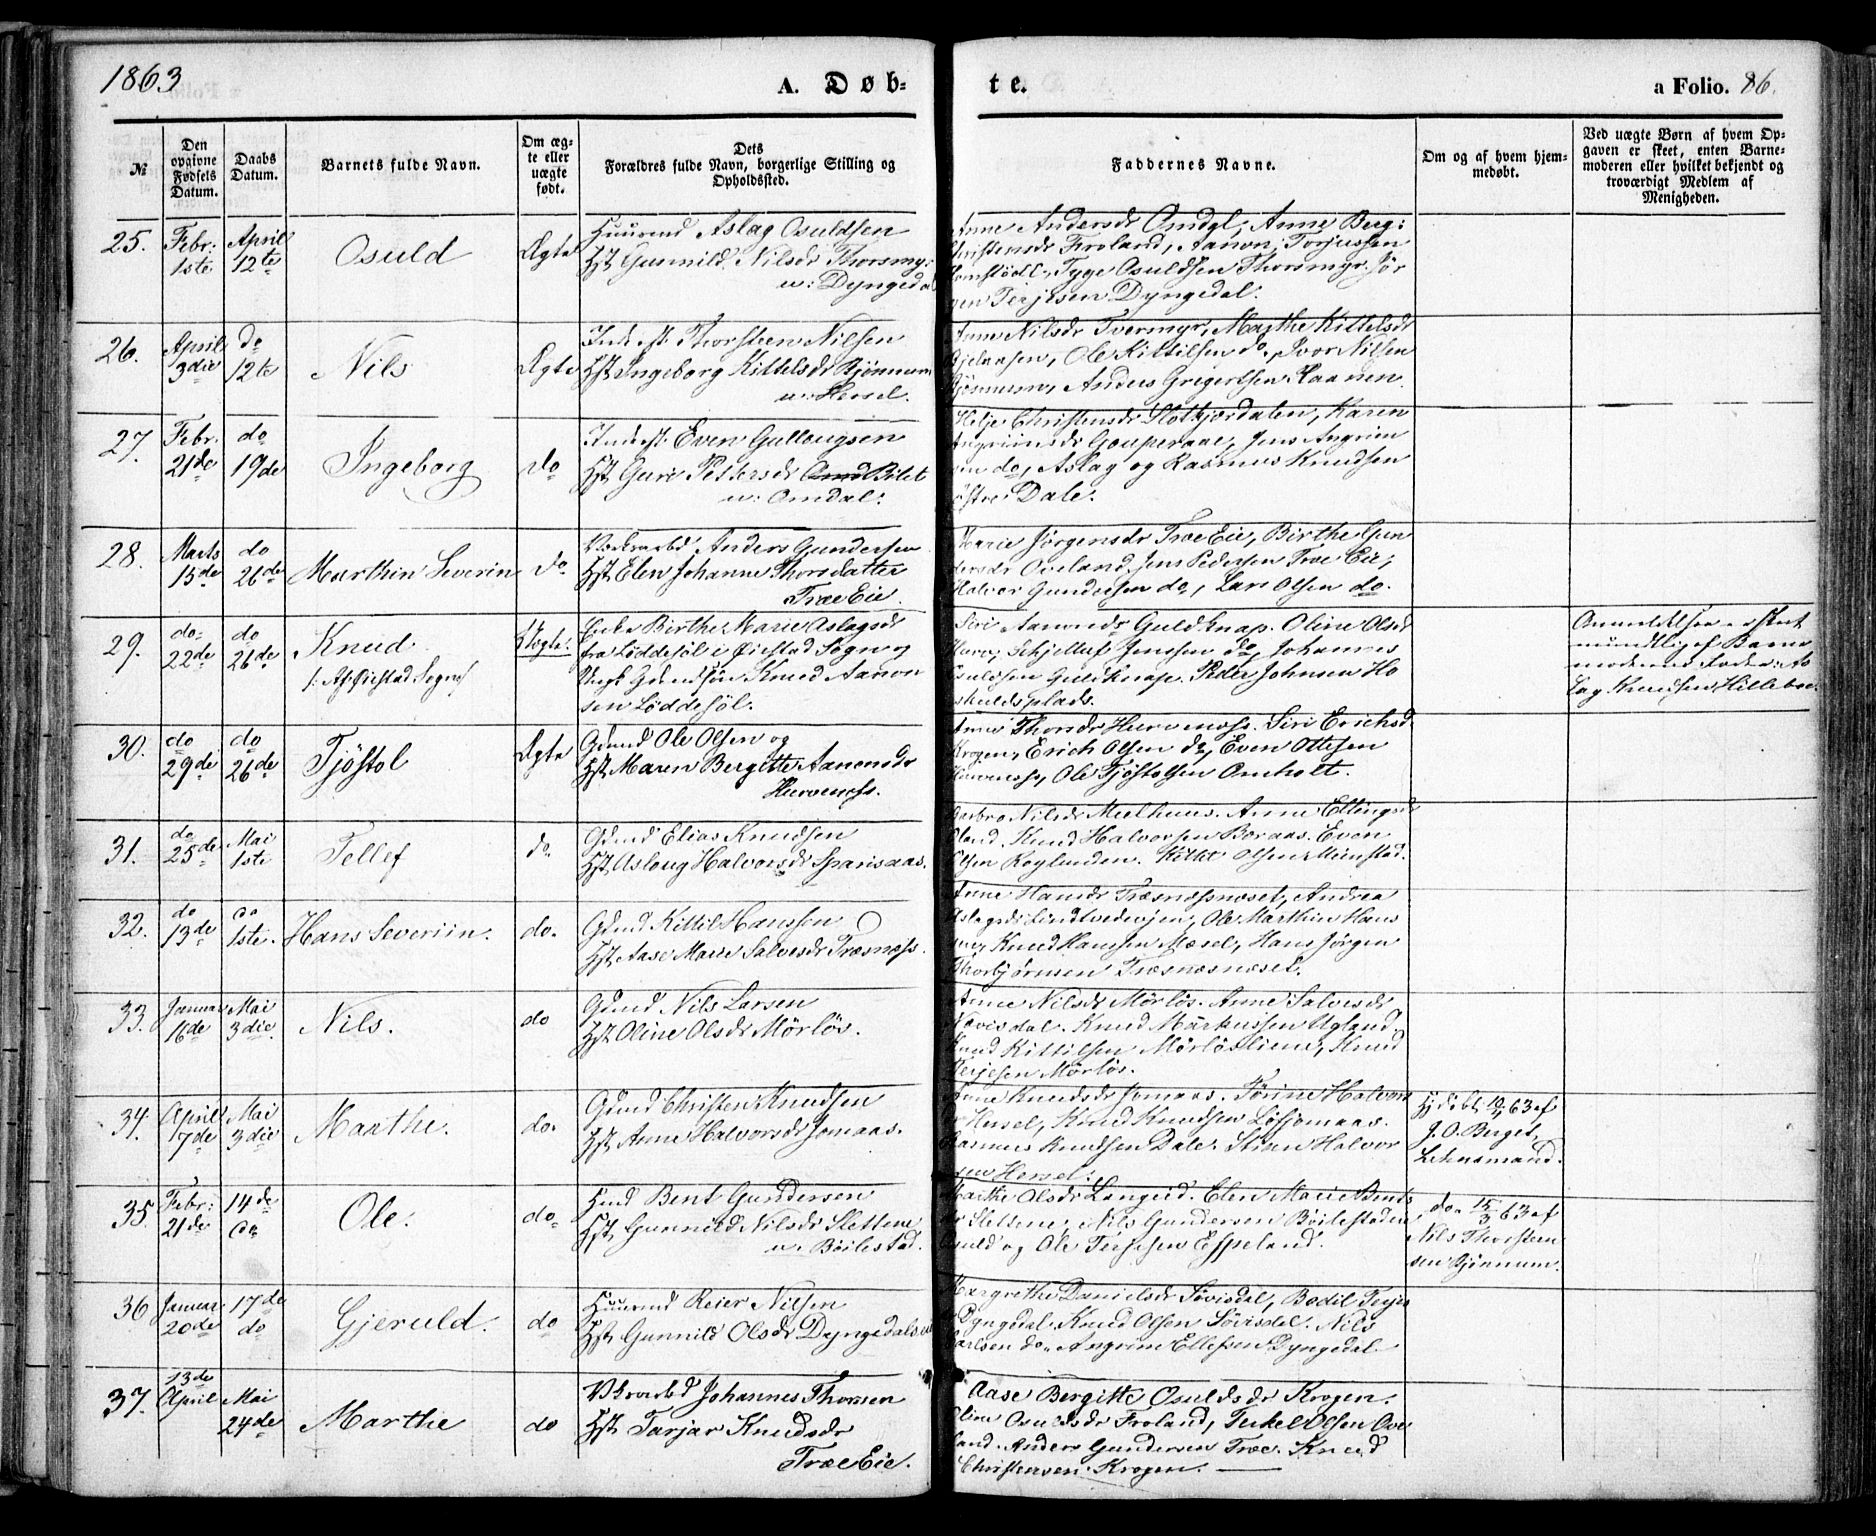 1863
A. Døb-
te.
a Folio. 86.
№
Den opgivne Fødsels Datum.
Daabs Datum.
Barnets fulde Navn.
Om ægte eller uægte født.
Dets Forældres fulde Navn, borgerlige Stilling og Opholdssted.
Faddernes Navne.
Om og af hvem hjemmedøbt.
Ved uægte Børn af hvem Opgaven er skeet, enten Barnemoderen eller hvilket bekjendt og troværdigt Medlem af Menigheden.
25.
Febr: 1ste
April 12te
Osuld
Ægte
Huusmd Aslag Osuldsen
Hst Gunnild Nilsdr Thorsmyr
u: Dyngedal
Anne Andersdr Omdal, Anne Berg:
Christensdr Froland, Aanon Torjussen
Tyge Osuldsen Thorsmyr. Jør
gen Terjesen Dyngedal.
26.
April 3die
do 12te
Nils
Ægte
Inderst Thorsteen Nilsen
Hst Ingeborg Kittelsdr Bjönnum
u: Hersel.
Anne Nilsdr Tvermyr, Marthe Kittelsdr
Ole Kittilsen do, Ivor Nilsen
Bjönnum, Anders Grigertsen Haanen.
27.
Febr. 21de
do 19de
Ingeborg
do
Inderst Even Gullougsen
Hst Guri Pettersdr Bilet
u: Omdal.
Helje Christensdr Slotkjærdalen, Karen
Angrimsdr Gouperaae, Jens Angrim
sen do, Aslag og Rasmus Knudsen
østre Dale.
28.
Marts 15de
do 26de
Marthin Severin
do
Værkarbd Anders Gundersen
Hst Elen Johanne Thorsdatter
Træe Eie.
Marie Jørgensdr Træe Eie, Birthe Gun
dersdr Oveland. Jens Pedersen Træe Eie,
Halvor Gundersen do, Lars Olsen do.
29.
do: 22de
do 26de
Knud
/: Af Øiestad Sogn :/
Uægte:
Enke Birthe Marie Aslagsdr
fra Løddesøl i Øiestad Sogn og
Ungk Gdmdsøn Knud Aanon
sen Løddesøl.
Siri Aanonsdr Guldknap. Oline Olsdr
Hurv, Schjellef Jenssen do, Johannes
Osuldsen Guldknap. Peder Johnsen Ho
skuldsplads.
Anmeldelsen er skeet
mundtlig af Barne
moderens Fader: As
lag Knudsen Hillebo
30.
do 29de
do 26de
Tjøstol
Ægte
Gdmd Ole Olsen og
Hst Maren Bergitte Aanonsdr
Hurvenæss.
Anne Thorsdr Hurvenæss. Siri Erichsdr
Krogen, Erich Olsen do, Even Ottesen
Hurvenæss, Ole Tjøstolsen Omholt.
31.
do 25de
Mai 1ste
Tellef
do
Gdmd Elias Knudsen
Hst Aslaug Halvorsdr Sparsaas.
Barbro Nilsdr Mielhuus. Anne Ellingsdr
Knud Halvorsen Boraas. Even
Olsen Roglunden. Kittel Olsen Mimstad.
32.
do 13de
do 1ste.
Hans Severiin.
do.
Gdmd Kittil Hanssen
Hst Aase Marie Salvesdr Træsnæss.
Anne Hansdr Træsnæssnæset, Andrea
Aslagsdr Lindtvedvejen, Ole Marthin Hans
sen, Knud Hanssen Mæsel, Hans Jørgen
Thorbjørnsen Træsnæsnæset.
33.
Januar 16de
Mai 3die.
Nils.
do
Gdmd Nils Larsen
Hst Oline Olsdr Mörlös.
Anne Nilsdr Mörlös. Anne Salvesdr
Nævisdal. Knud Markussen Ugland.
Knud Kittilsen Mörlöslien, Knud
Terjesen Mörlös.
34.
April 17de
Mai 3die
Marthe.
do.
Gdmd Christen Knudsen
Hst Anne Halvorsdr Jomaas.
Anne Knudsdr Jomaas. Törine Halvors
dr Hersel, Knud Knudsen Løssjomaas.
Rasmus Knudsen Dale. Stian Halvor
sen Hersel.
Hj døbt 19/4 63 af
J. O. Berget,
Lehnsmand.
35.
Febr: 21de
14de do
Ole.
do.
Hmd Bent Gundersen
Hst Gunnild Nilsdr Slettene
u. Böilestad.
Marthe Olsdr Langeid. Elen Marie Bents
dr Slettene, Nils Gundersen Böilestaden
Osuld og Ole Terjesen Espeland.
do. 15/3 63 af
Nils Thorsteen
sen Bjönnum.
36
Januar 20de
17de do
Gjeruld.
do
Huusmd Reier Nilsen
Hst Gunnild Olsdr Dyngedals
Margrethe Danielsdr Søvisdal, Bodil Terjes
dr Dyngedal. Knud Olsen Søvisdal. Nils
Carlsen do. Angrim Ellefsen Dyngedal.
37.
13de April
Mai 24de
Marthe
do
Vkarbd Johannes Thorsen
Hst Tarjær Knudsdr
Træe Eie.
Aase Bergitte Osuldsdr Krogen.
Oline Osuldsdr Froland, Terkel Olsen Ove
land. Anders Gundersen Træe. Knud
Christensen Krogen.